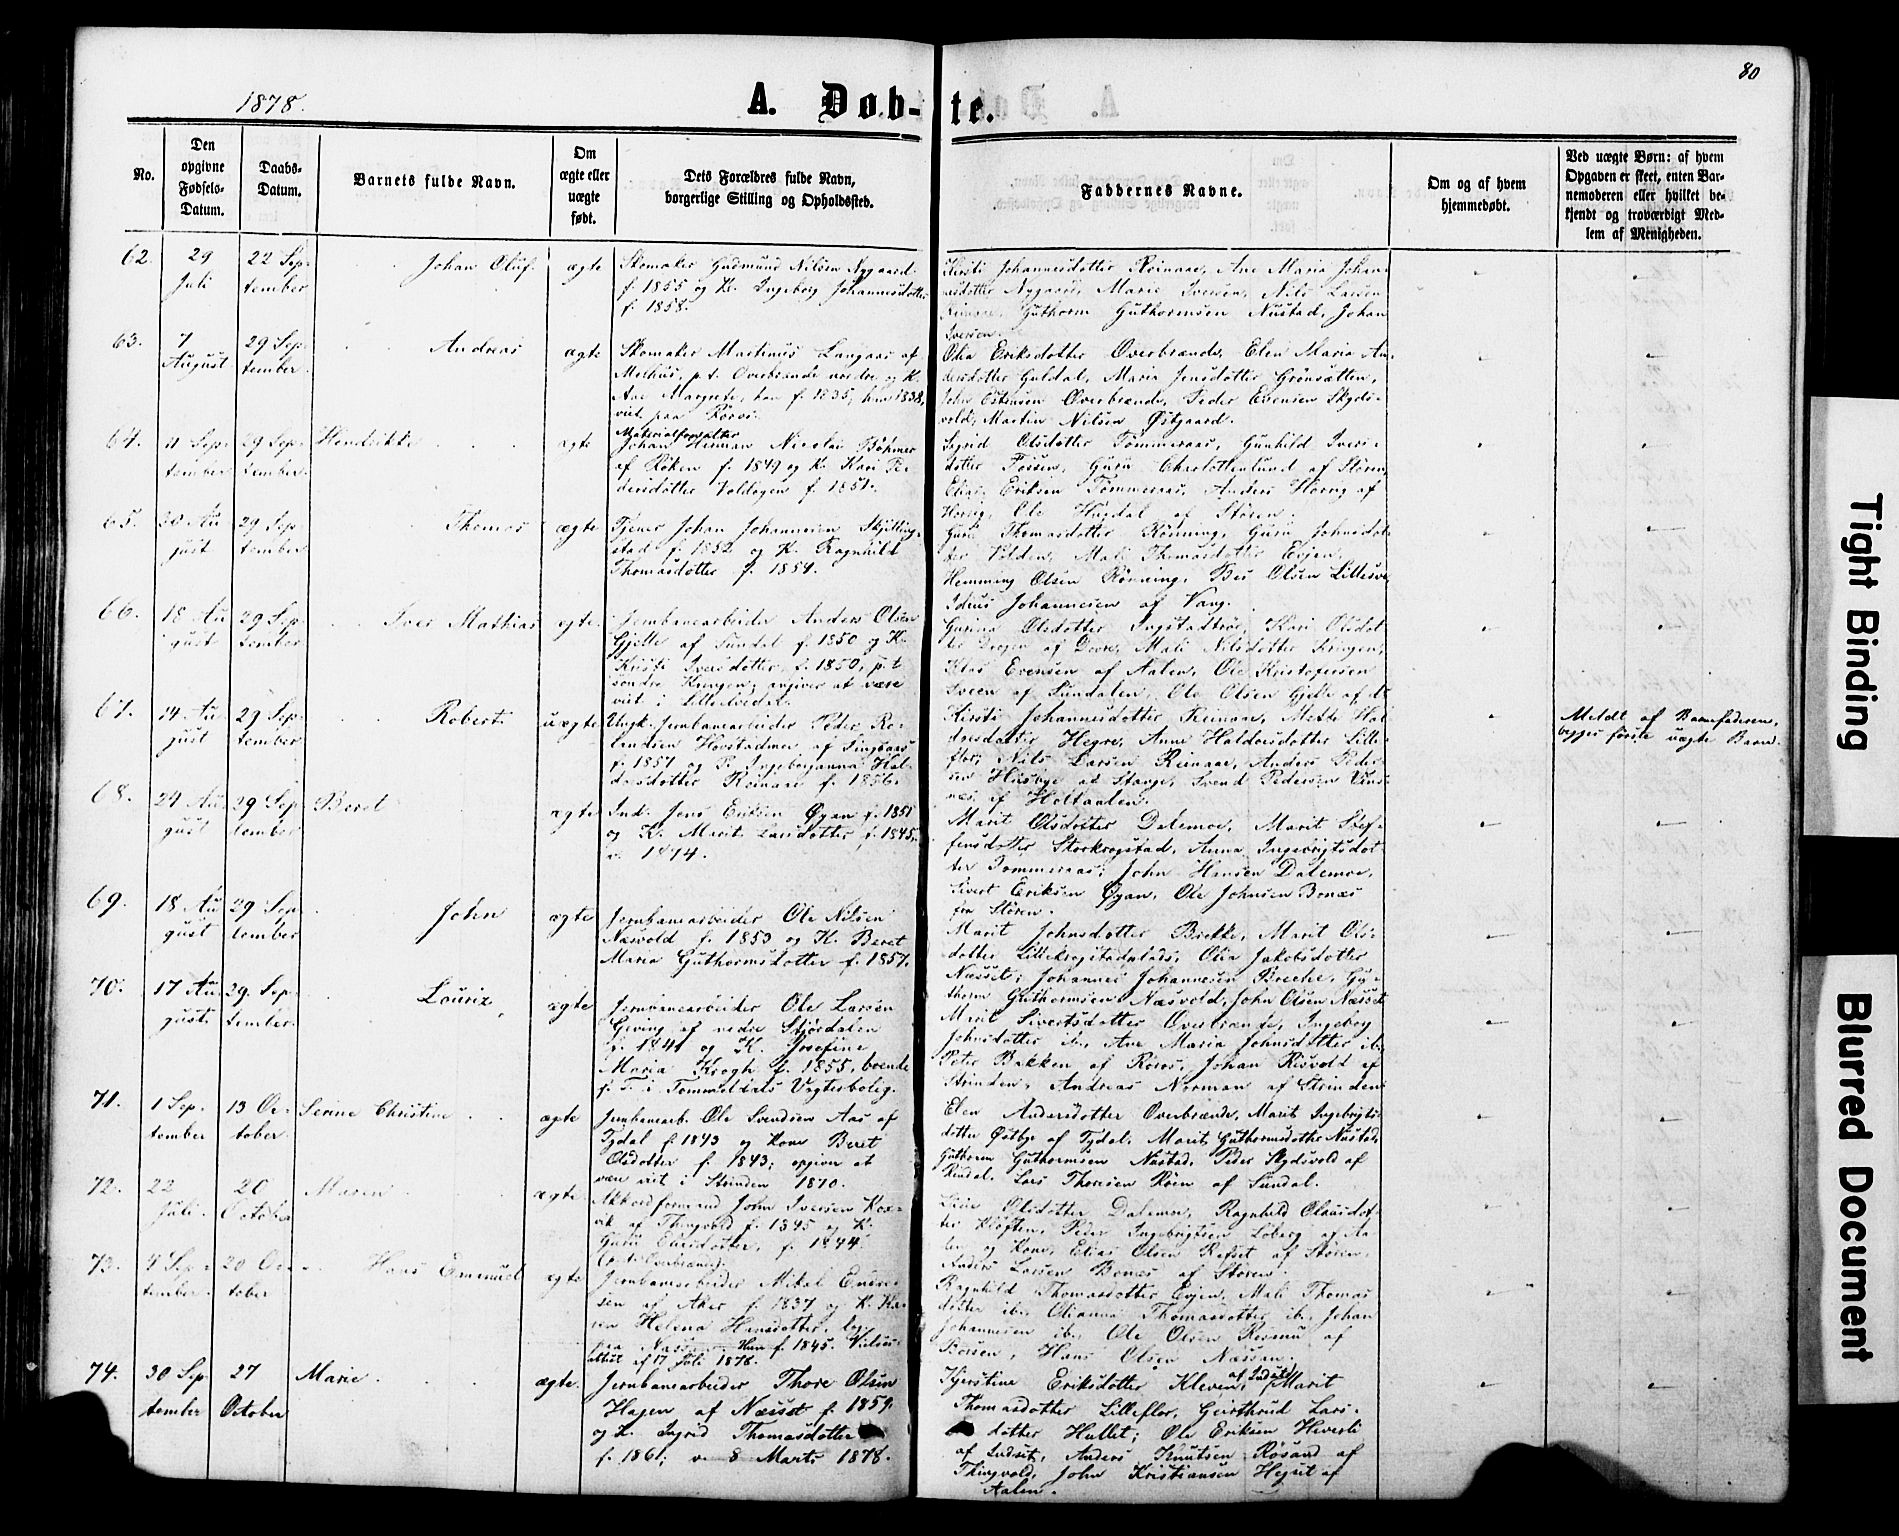 80
1878.
A. Døb-te.
No.
Den opgivne Fødsels-Datum.
Daabs-Datum.
Barnets fulde Navn.
Om ægte eller uægte født.
Dets Forældres fulde Navn, borgerlige Stilling og Opholdssted.
Faddernes Navne.
Om og af hvem hjemmedøbt.
Ved uægte Børn: af hvem Opgaven er skeet, enten Barnemoderen eller hvilket bekjendt og troværdigt Medlem af Menigheden.
62. 29 Juli 22 September Johan Oluf. ægte
Skomaker Gudmund Nilsen Nygaard.
f. 1855 og K. Ingeborg Johannesdotter
f. 1858.
Kirsti Johannesdotter Reinaae, Ane Maria Johan-
nesdotter Nygaard, Marie Iversen, Nils Larsen
Reinaae, Guthorm Guthormsen Nustad, Johan
Iversen.
63. 7 August 29 September Andreas ægte
Skomaker Martinus Langaas af
Melhus, p. t. Overbrænde nordre og K.
Ane Margrete, han f. 1835, hun 1838,
viet paa Röros.
Olia Eriksdotter Overbrænde, Elen Maria An-
dersdotter Guldal, Maria Jensdotter Grönsætten,
John Estensen Overbrænde, Peder Evensen Skyds-
vold, Martin Nilsen Østgaard.
64. 11 September 29 September Hendrikke ægte
Materialforvalter
Johan Herman Nicolai Böhmer
af Röken f. 1849 og K. Kari Pe-
dersdotter Voldagen f. 1851.
Sigrid Olsdotter Tömmeraas, Gunhild Ivers-
dotter Fossen, Guru Charlottenlund af Stören,
Elias Eriksen Tömmeraas, Anders Horrig af
Horrig, Ole Hugdal af Stören.
65. 30 August 29 September Thomas ægte
Tjener Johan Johannesen Skjelling-
stad f. 1852 og K. Ragnhild
Thomasdotter f. 1854.
Guru Thomasdotter Rönning, Guru Johnsdot-
ter Volden, Mali Thomasdotter Evjen,
Hemming Olsen Rönning,
Johannesen af Vang.
66. 18 August 29 September Iver Mathias ægte
Jernbanearbeider Anders Olsen
Gjelle af Sundal f. 1850 og K.
Kristi Iversdotter f. 1850, p. t.
söndre Kringen; angiver at være
viet i Lilledvedal.
Gurina Olsdotter Ingstadtrö, Kari Olsdot-
ter af Dovre, Mali Nilsdotter Kringen,
Klas Evensen af Aalen, Ole Kristofersen
Sveen af Sundalen, Ole Olsen Gjelle af do
67. 14 August 29 September Robert uægte
Ungk. Jernbanearbeider Peder Ro-
landsen Hovstadmoe af Singsaas
f. 1857 og P. Ingeborganna Hal-
dorsdotter Reinaae f. 1856.
Kirsti Johannesdotter Reinaae, Mette Hal-
dorsdotter Hegre, Anne Haldorsdotter Lille-
flor, Nils Larsen Reinaae, Anders Peder-
sen Husbye af Stange, Svend Pedersen
af Holtaalen.
Meldt af Barnefaderen,
begges förste uægte Barn.
68. 24 August 29 September Beret ægte
Ind. Jens Eriksen Øyan f. 1851
og K. Marit Larsdotter f. 1845,
v. 1874.
Marit Olsdotter Dalemoe, Marit Stef-
fensdotter Storkrogstad, Anna Ingebrigtsdot-
ter Tommeraas; John Hansen Dalemoe,
Sivert Eriksen Øyan, Ole Johnsen Bones
fra Stören.
69. 18 August 29 September John ægte
Jernbanearbeider Ole Nilsen
Næsvold f. 1853 og K. Beret
Maria Guthormsdotter f. 1857.
Marit Johnsdotter Brekke, Marit Ols-
dotter Lillekrogstadplads, Olia Jakobsdotter
Næsset; Johannes Johannesen Brecke, Gu-
thorm Guthormsen Næsvold, John Olsen Næsset
70. 17 August 29. September Louriz ægte
Jernbanearbeider Ole Larsen
Geving af nedre Stjördalen
f. 1841 og K. Josefine
Maria Krogh f. 1855, boende
p. T. i Tommeldals Vogterbolig.
Marit Sivertsdotter Overbrænde, Ingeborg
Johnsdotter ib., Ane Maria Johnsdotter ib.;
Peter Bakken af Röros, Johan Risvold af
Strinden, Andreas Norman af Strinden
71. 1 September 13 October Serine Christine ægte
Jernbanearb. Ole Svendsen Aas af
Tydal f. 1843 og Kone Beret
Olsdotter f. 1843; opgiver at
være viet i Strinden 1870.
Elen Andersdotter Overbrænde, Marit Ingebrigts-
dotter Østbye af Tydal, Marit Guthormsdotter Nustad,
Guthorm Guthormsen Nustad, Peder Skydsvold af
Rindal, Lars Thoresen Röen af Sundal.
72. 22 Juli. 20 October Maren ægte
Akkordformand John Iversen Kor-
vik af Thingvold f. 1845 og K.
Guru f. 1844.
Olsdotter Dalemoe, Ragnhild Olausdot-
ter Klöften, Peder Ingebrigtsen Loberg af Aa-
len og Kone, Elias Olsen Refset af Stören,
Anders Larsen Bones af Stören.
73. 4 September 20 October Hans Emanuel ægte
Jernbanearbeider Mikal Enires-
sen af Aker f. 1837 og K. Ka-
ren Helena Hansdotter,
paa Næssan Hun f. 1845.
17 Juli 1878.
Ragnhild Thomasdotter Evjen, Mali Thomas
dotter ib., Olianna Thomasdotter ib., Johan
Johannesen ib., Ole Olsen Rosmu af
Börsen, Hans Olsen Næssan.
74. 30 September 27 October Marie ægte.
Jernbanearbeider Thore Olsen
Hagen af Næsset f. 1859.
og K. Ingrid Thomasdotter
f. 1861; v. 8 Marts 1878.
Kjerstine Eriksdotter Kleven af Indset, Marit
Thomasdotter Lilleflor, Geirthrud Lars-
dotter Hullet; Ole Eriksen Hiversli
af Indset, Anders Knutsen Rösand af
Thingvold, John Kristiansen Hegset af
Aalen.
Tight Binding
Blurred Document